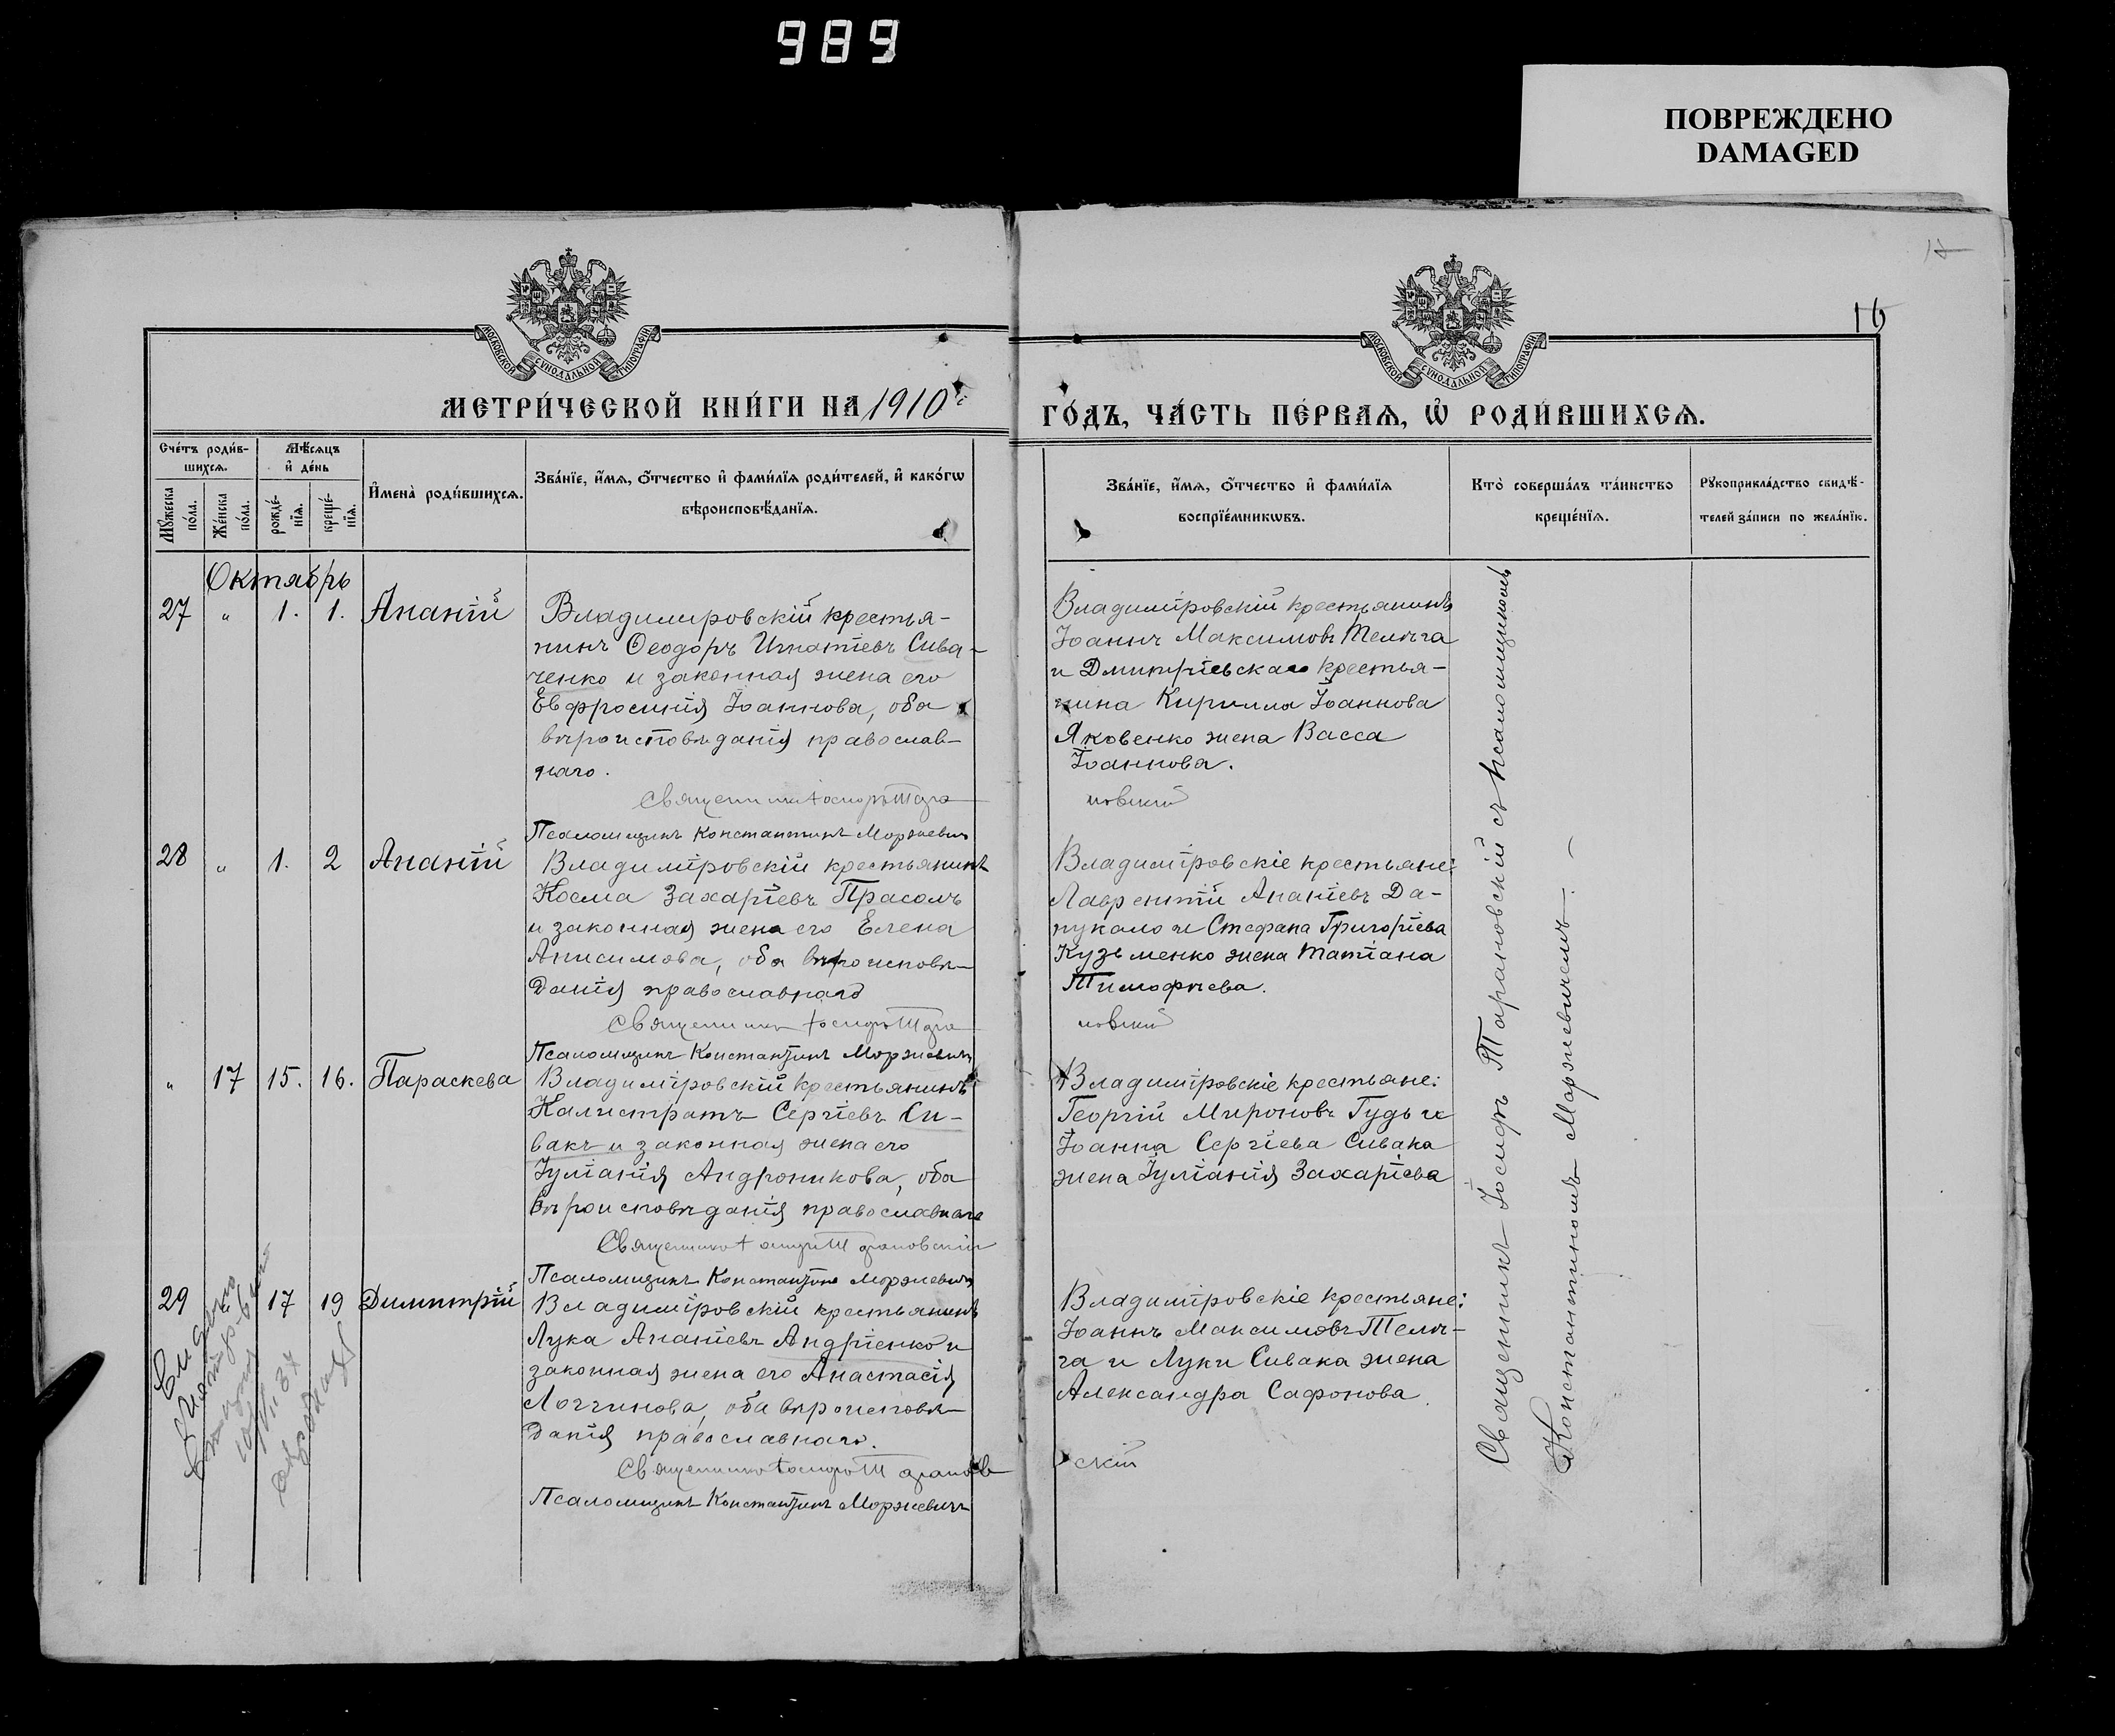 989
ПОВРЕЖДЕНО
DAMAGED
16
МОСКОВСКОЙ СѴНОДАЛЬНОЙ ТИПОГРАФІИ
МОСКОВСКОЙ СѴНОДАЛЬНОЙ ТИПОГРАФІИ
МЕТРИ́ЧЕСКОЙ КНИ́ГИ НА 1910
ГО́ДЪ, ЧА́СТЬ ПЕ́РВАѦ, Ѡ҆ РОДИ́ВШИХСѦ.
Сче́тъ роди́в-
шихсѧ.
Мꙋ́жеска по́ла.
Же́нска по́ла.
Мѣ́сѧцъ
и҆ де́нь
рожде́-
нїѧ.
креще́-
нїѧ.
И҆мена̀ роди́вшихсѧ.
Зва́нїе, и҆́мѧ, ѻ҆́тчество и҆ фами́лїѧ роди́телей, и҆ како́гѡ
вѣроисповѣ́данїѧ.
Зва́нїе, и҆́мѧ, ѻ҆́тчество и҆ фами́лїѧ
воспрїе́мникѡвъ.
Кто̀ соверша́лъ та́инство
креще́нїѧ.
Рꙋкоприкла́дство свидѣ́-
телей за́писи по жела́нїю.
Октябрь
27 " 1. 1. Ананій
Владимировскій крестья-
нинъ Ѳеодоръ Игнатіевъ Сива-
ченко и законная жена его
Евфросинія Іоаннова, оба
вѣроисповѣданія православ-
наго.
Священникъ Іосифъ Тара
новскій
Псаломщикъ Константинъ Моржевичъ
Владимировскій крестьянинъ
Іоаннъ Максимовъ Телѣга
и Дмитріевскаго крестья-
нина Кирилла Іоаннова
Яковенко жена Васса
Іоаннова.
28 " 1. 2 Ананій
Владиміровскій крестьянинъ
Косма Захаріевъ Прасолъ
и законная жена его Елена
Анисимова, оба вѣроисповѣ-
данія православнаго
Священникъ Іосифъ Тара
новскій
Псаломщикъ Константинъ Моржевичъ
Владиміровскіе крестьяне:
Лаврентій Ананіевъ Да-
пукало и Стефана Григоріева
Кузьменко жена Татіана
Тимофѣева.
" 17 15. 16. Параскева
Владиміровскій крестьянинъ
Калистратъ Сергіевъ Си-
вакъ и законная жена его
Іуліанія Андроникова, оба
вѣроисповѣданія православнаго
Священникъ Іосифъ Тарановскій
Псаломщикъ Константинъ Моржевичъ
Владиміровскіе крестьяне:
Георгій Мироновъ Гудь и
Іоанна Сергіева Сивака
жена Іуліанія Захаріева
29 " 17 19 Димитрій
Владиміровскій крестьянинъ
Лука Ананіевъ Андріенко и
законная жена его Анастасія
Логгинова, оба вѣроисповѣ-
данія православнаго.
Священникъ Іосифъ Таранов
скій
Псаломщикъ Константинъ Моржевичъ
Владиміровскіе крестьяне:
Іоаннъ Максимовъ Телѣ-
га и Луки Сивака жена
Александра Сафонова
Священникъ Іосифъ Тарановскій съ псаломщикомъ
Константиномъ Маржевичемъ